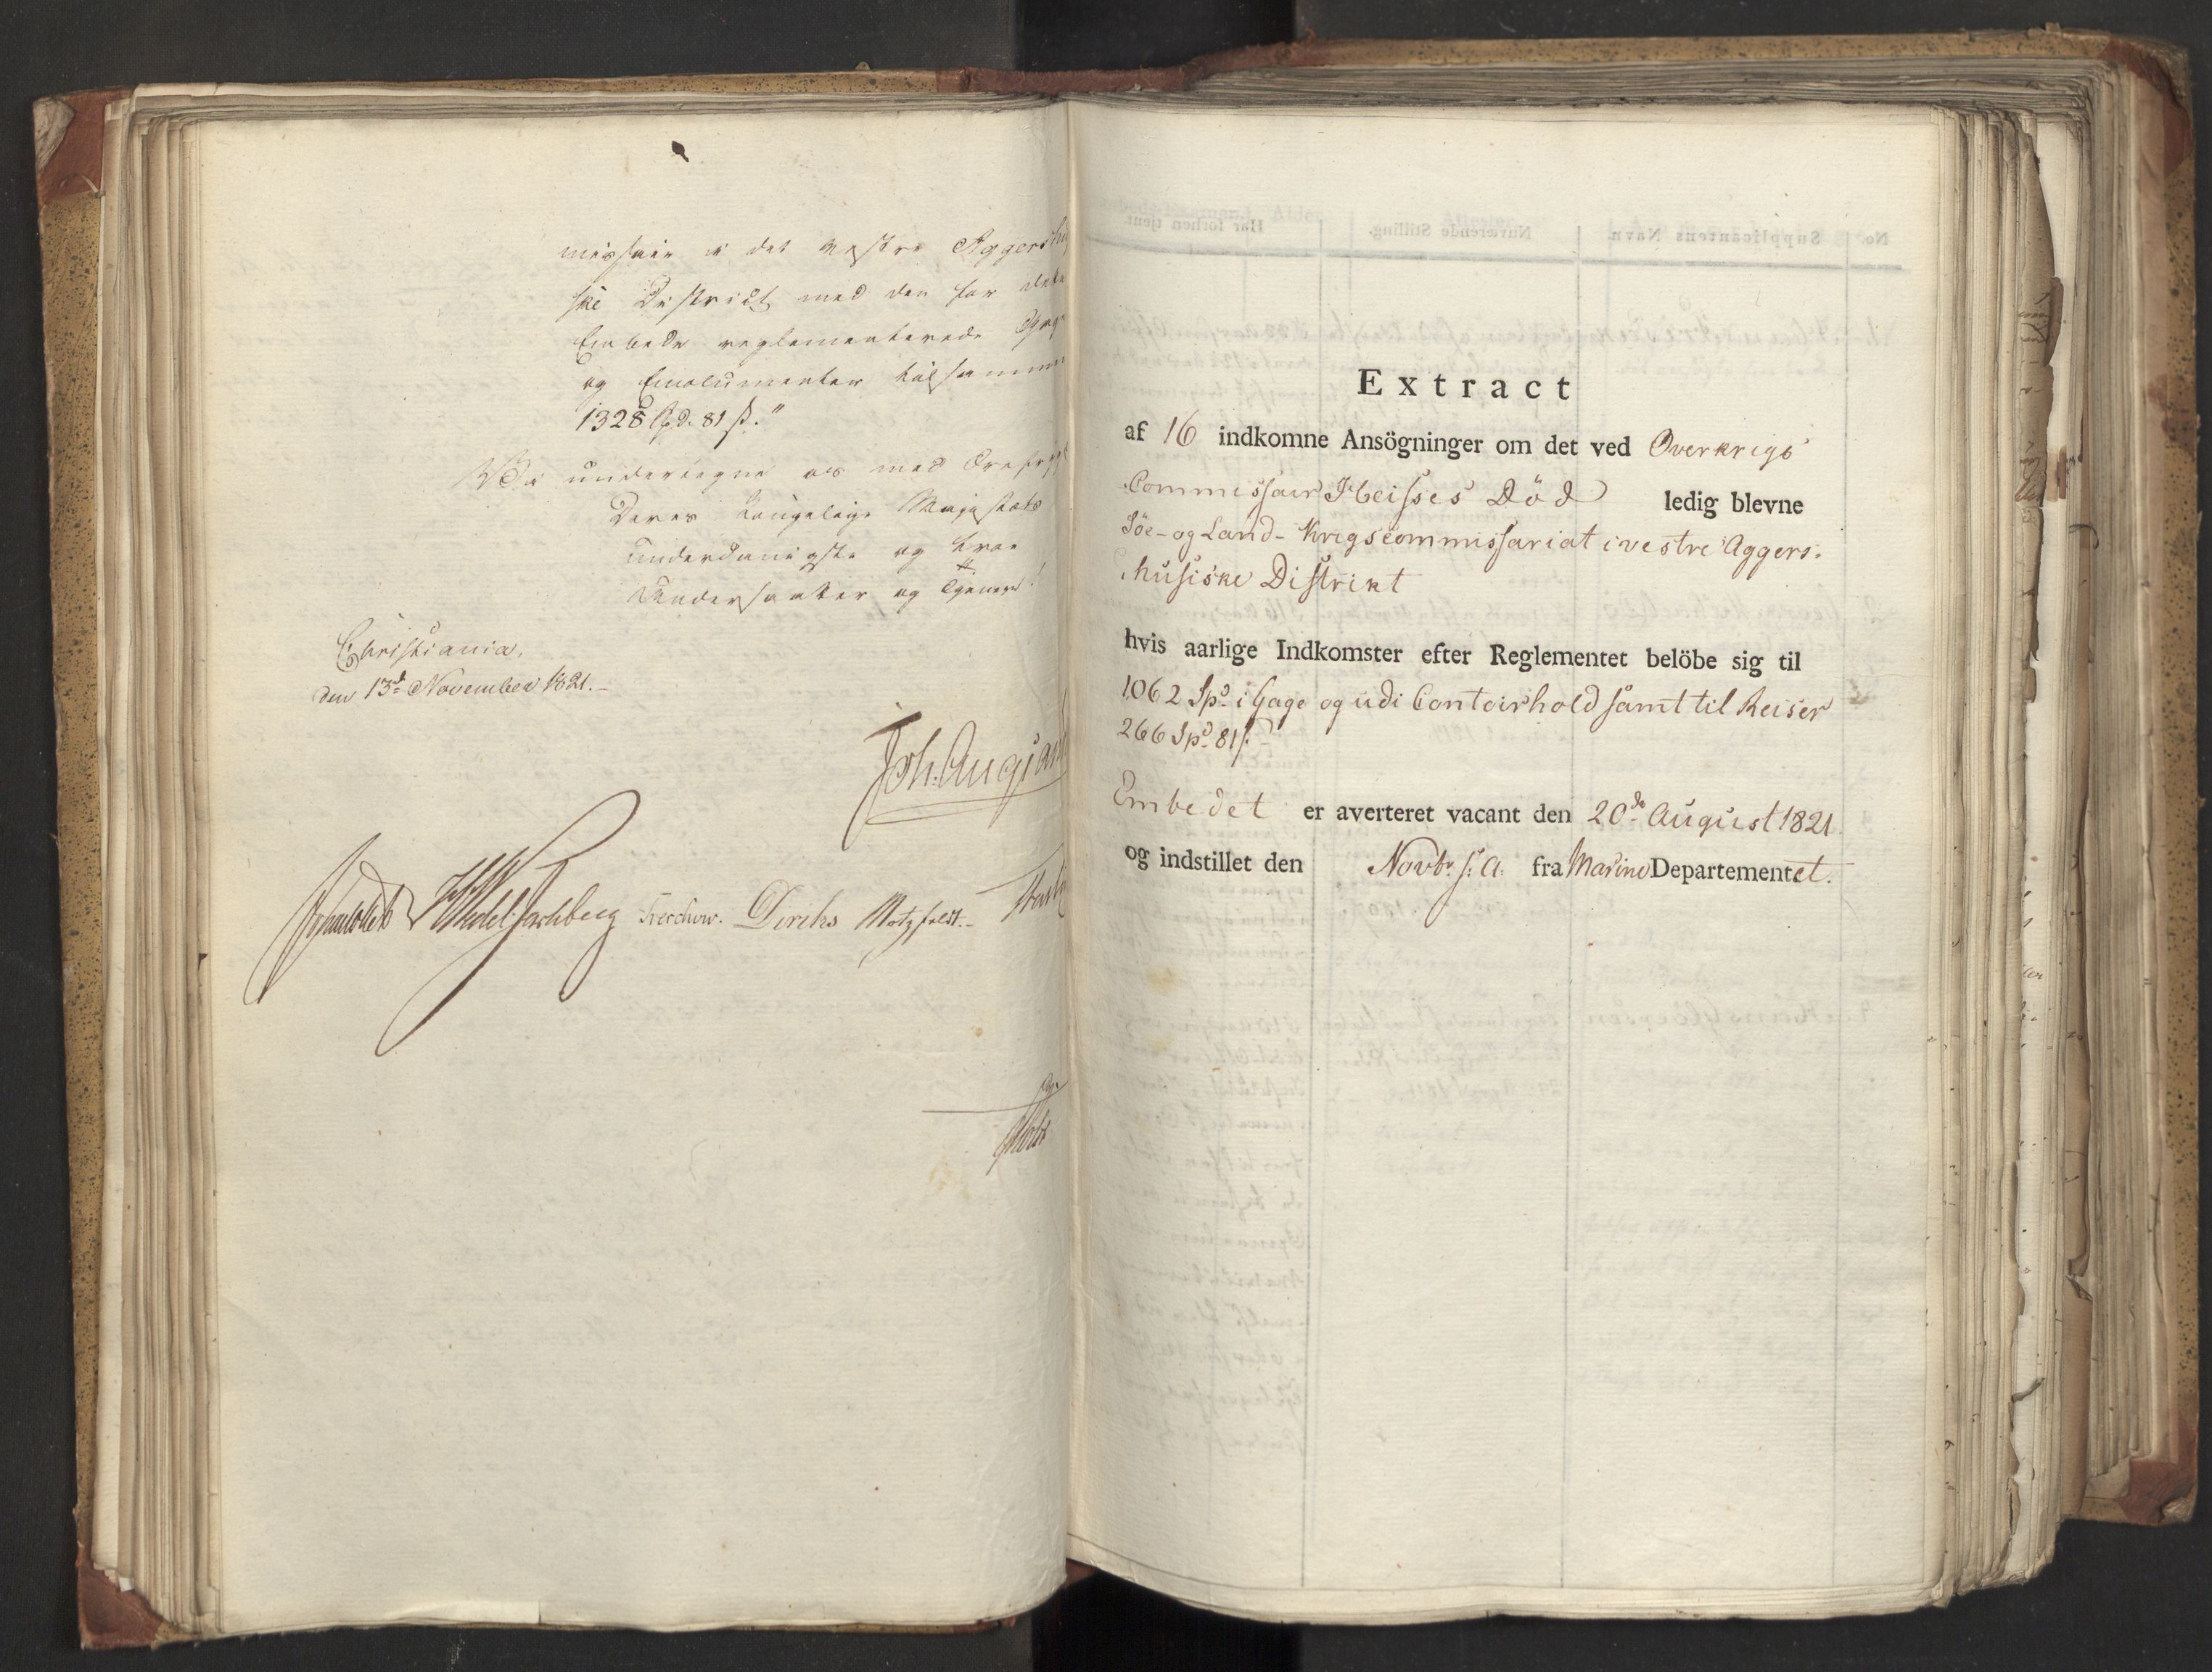 missair i det vestre Aggershu
ske District med den for dette
Embede reglementerede Gage
og Emolumenter tilsammen
1328 Spd. 81 ß."
Vi undertegne os med Ærefrygt
Deres Kongelige Majestæts
underdanigste og troe
Undersaatter og Tjenere!
Christiania,
den 13d November 1821.-
Joh. Aug. Sand
Wedel Jarlsberg Treschow. Diriks Motzfeldt.-
Holst
Extract
af 16 indkomne Ansögninger om det ved Overkrigs
Commissair Heisses Död ledig blevne
Söe- og Land- Krigscommissariat i vestre Aggers-
husiske Distrikt
hvis aarlige Indkomster efter Reglementet belöbe sig til
1062 Spd i Gage og udi Contoirhold samt til Reiser
266 Spd 81 ß.
Embedet er averteret vacant den 20de August 1821
og indstillet den Novbr s: A. fra Marine Departementet.
No. Supplicantens Navn. Nuværende Stilling. Har forhen tjent